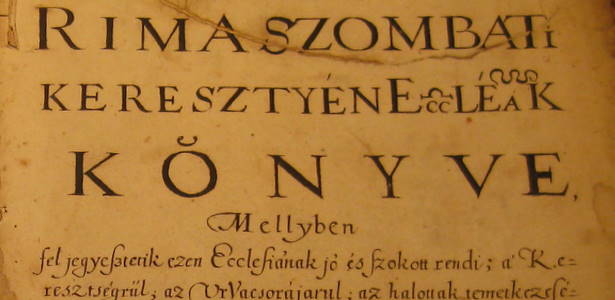 RIMASZOMBATi
KERESZTYÉN EccLÉáK
KŎNYVE,
Mellyben
fel jegyeßtetik ezen Ecclesiának jó és szokott rendi; a' Ke-
resztségrül; az UrVacsorájarul; az halottak temetkezésé-